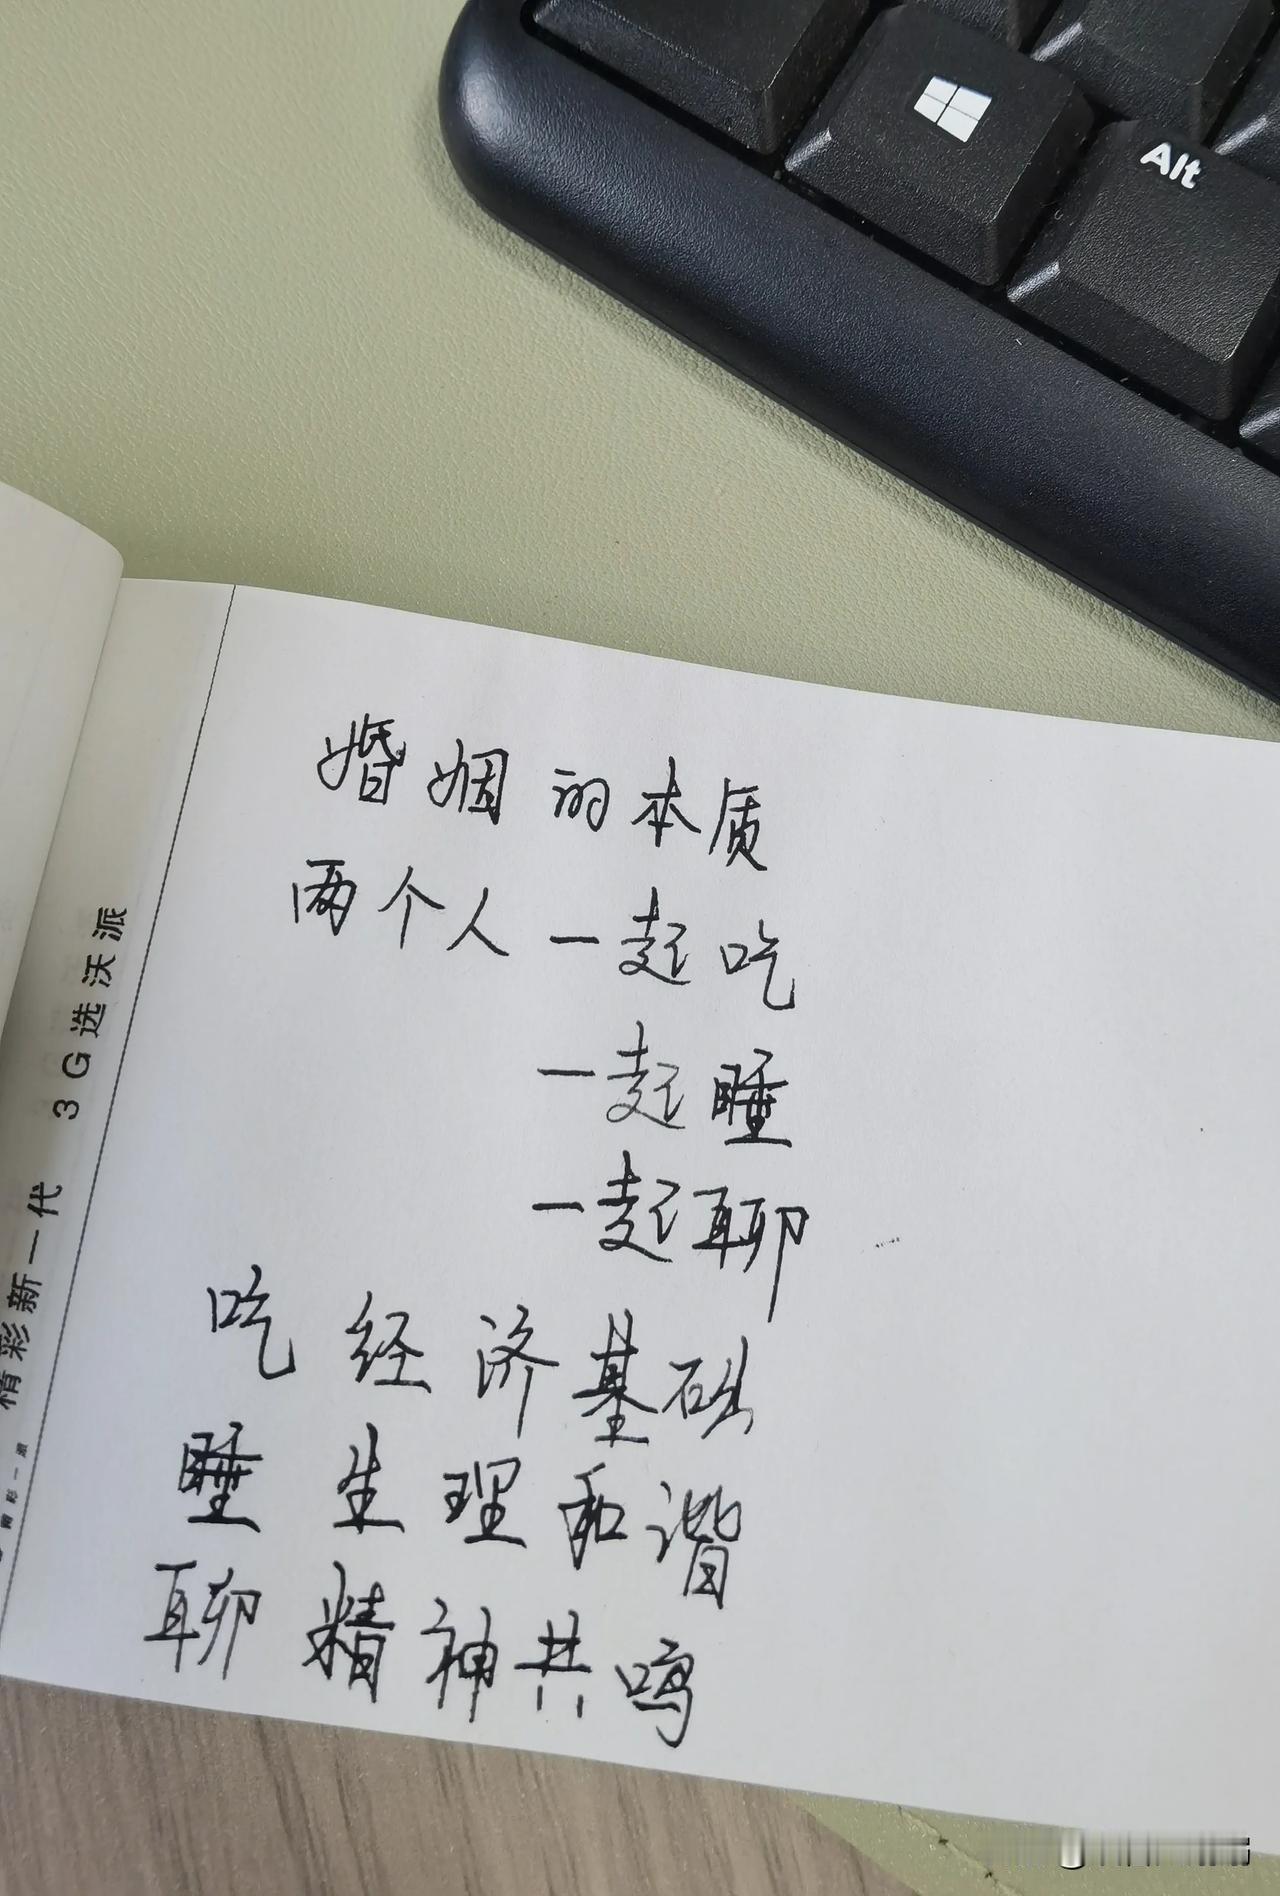 Alt
婚姻的本质
两个人一起吃
一起睡
一起聊
吃 经济基础
睡 生理和谐
聊 精神共鸣
精彩新一代 3G选沃派